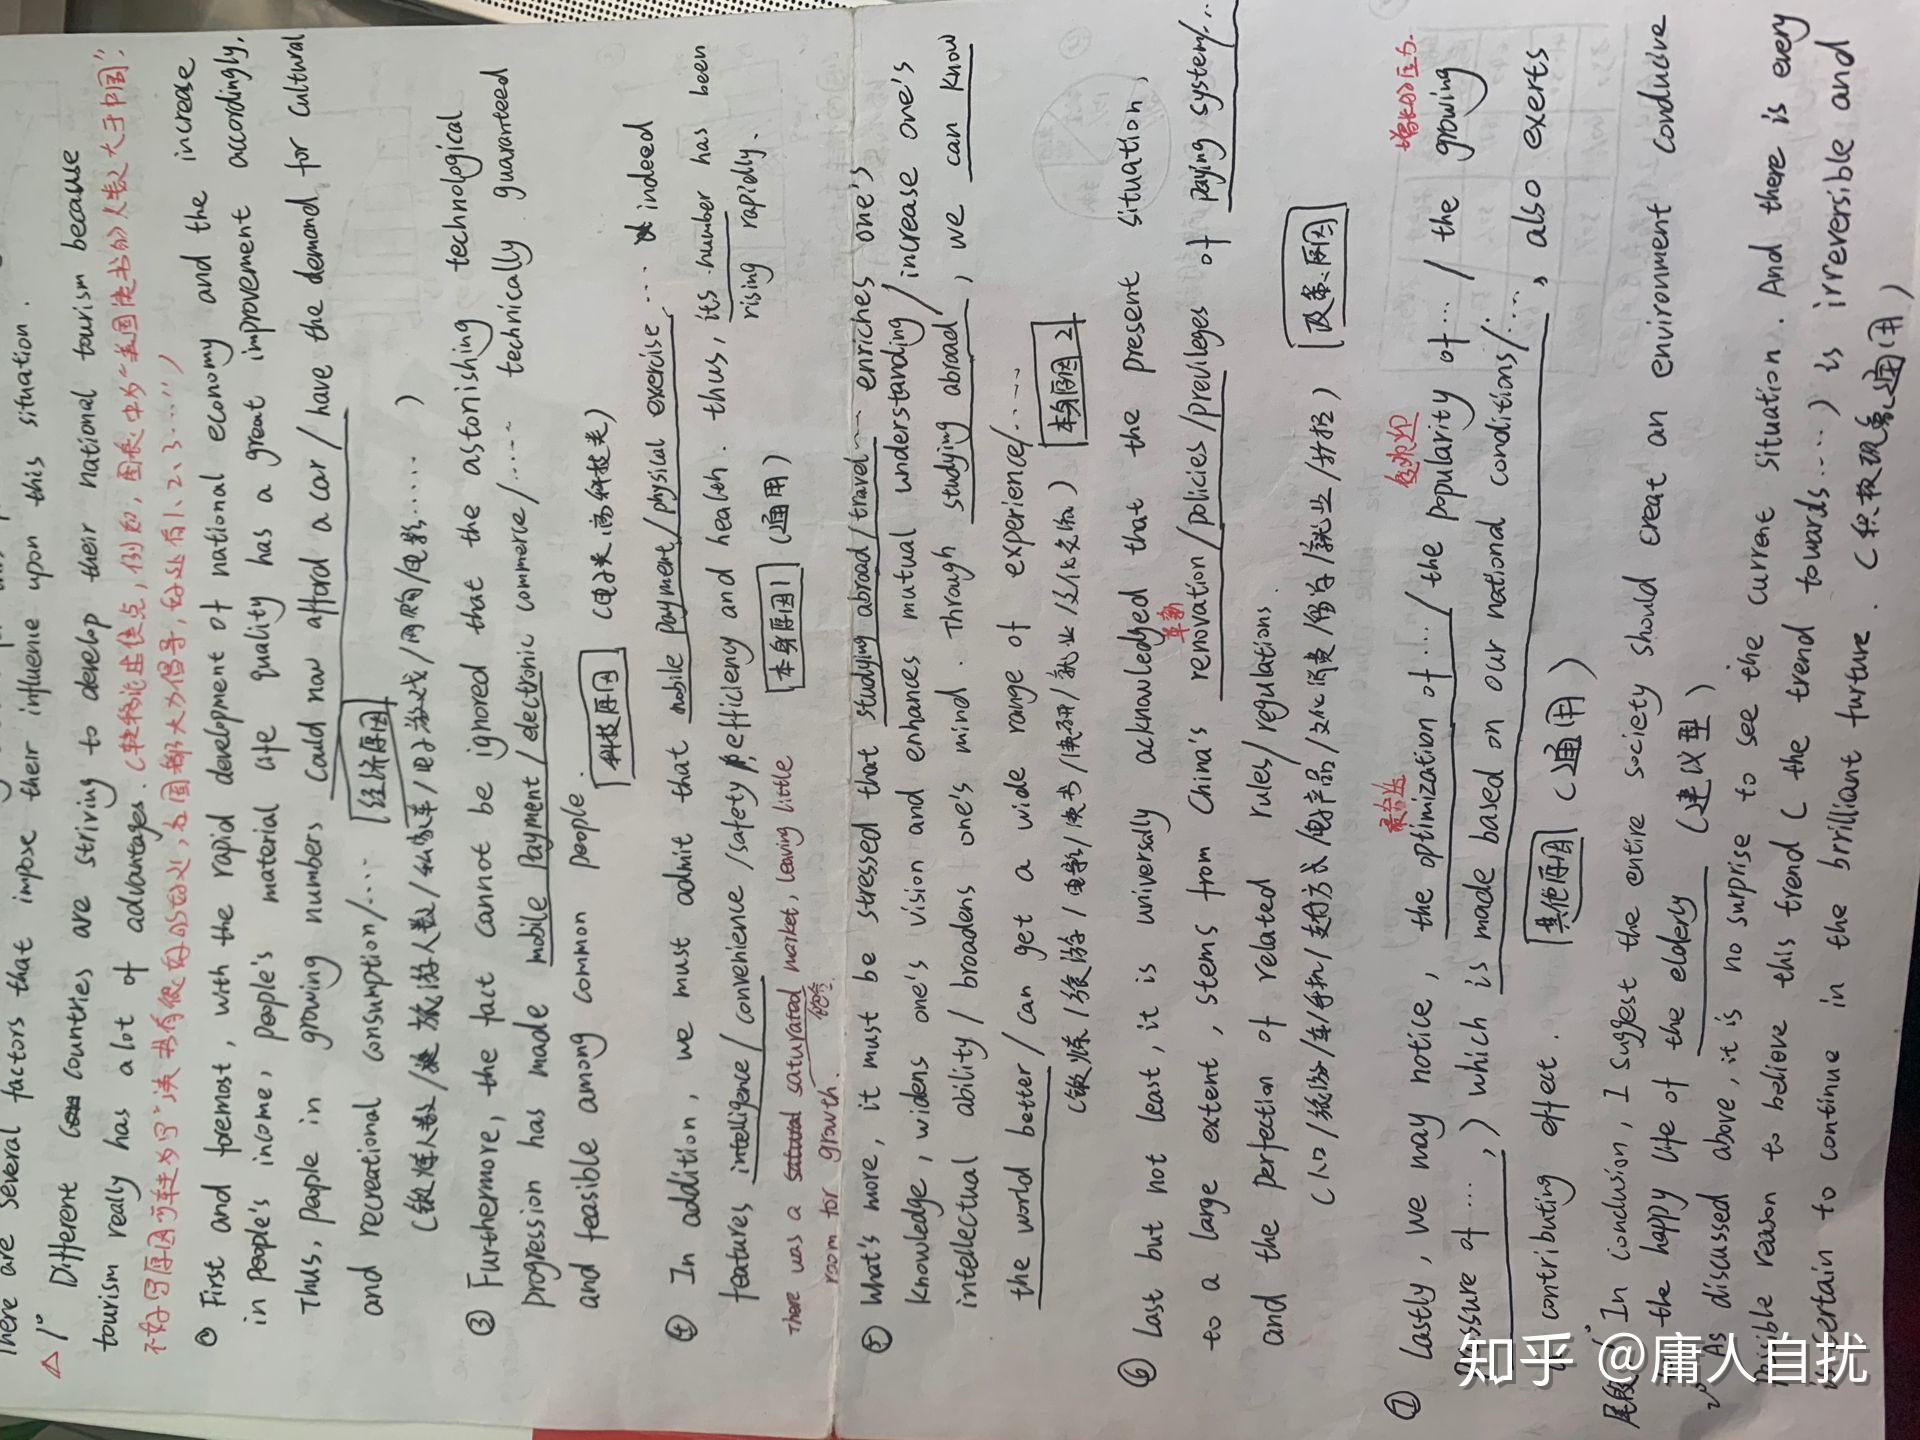 There are several factors that impose their influence upon this situation.
△ 1° Different countries are striving to develop their national tourism because
tourism really has a lot of advantages. (
不好写原因可转为写"
② First and foremost, with the rapid development of national economy and the increase
in people's income, people's material life quality has a great improvement accordingly.
Thus, people in growing numbers could now afford a car / have the demand for cultural
and recreational consumption/.... 经济原因
(锻炼人数/旅游人数/私家车/电子游戏/网购/电影......)
③ Furthermore, the fact cannot be ignored that the astonishing technological
progression has made mobile payment/electronic commerce/..... technically guaranteed
and feasible among common people. 科技原因 (电子类、高科技类)
④ In addition, we must admit that mobile payment/physical exercise... indeed
features intelligence/convenience/safety, efficiency and health. thus, its number has been
rising rapidly.
本身原因1 (通用)
There was a saturated market, leaving little
饱和
room for growth.
⑤ What's more, it must be stressed that studying abroad/travel... enriches one's
knowledge, widens one's vision and enhances mutual understanding/increase one's
intellectual ability/broadens one's mind. Through studying abroad, we can know
the world better/can get a wide range of experience/..... 本身原因2
(锻炼/旅游/电影/读书/读研/就业/文化交流)
⑥ Last but not least, it is universally acknowledged that the present situation,
革新
to a large extent, stems from China's renovation/policies/previleges of paying system/...
and the perfection of related rules/regulations. 政策原因
(人口/旅游/车/手机/支付方式/电子产品/文化消费/留学/就业/折扣)
最合适 受欢迎 增长的压力
⑦ Lastly, we may notice, the optimization of .../the popularity of .../the growing
pressure of ...., ) which is made based on our national conditions/...., also exerts
a contributing effect. 其他原因 (通用)
尾段 1° In conclusion, I suggest the entire society should creat an environment conducive
to the happy life of the elderly (建议型)
2° As discussed above, it is no surprise to see the current situation. And there is every
possible reason to believe this trend ( the trend towards.....) is irreversible and
is certain to continue in the brilliant furture. (积极现象通用)
知乎 @庸人自扰